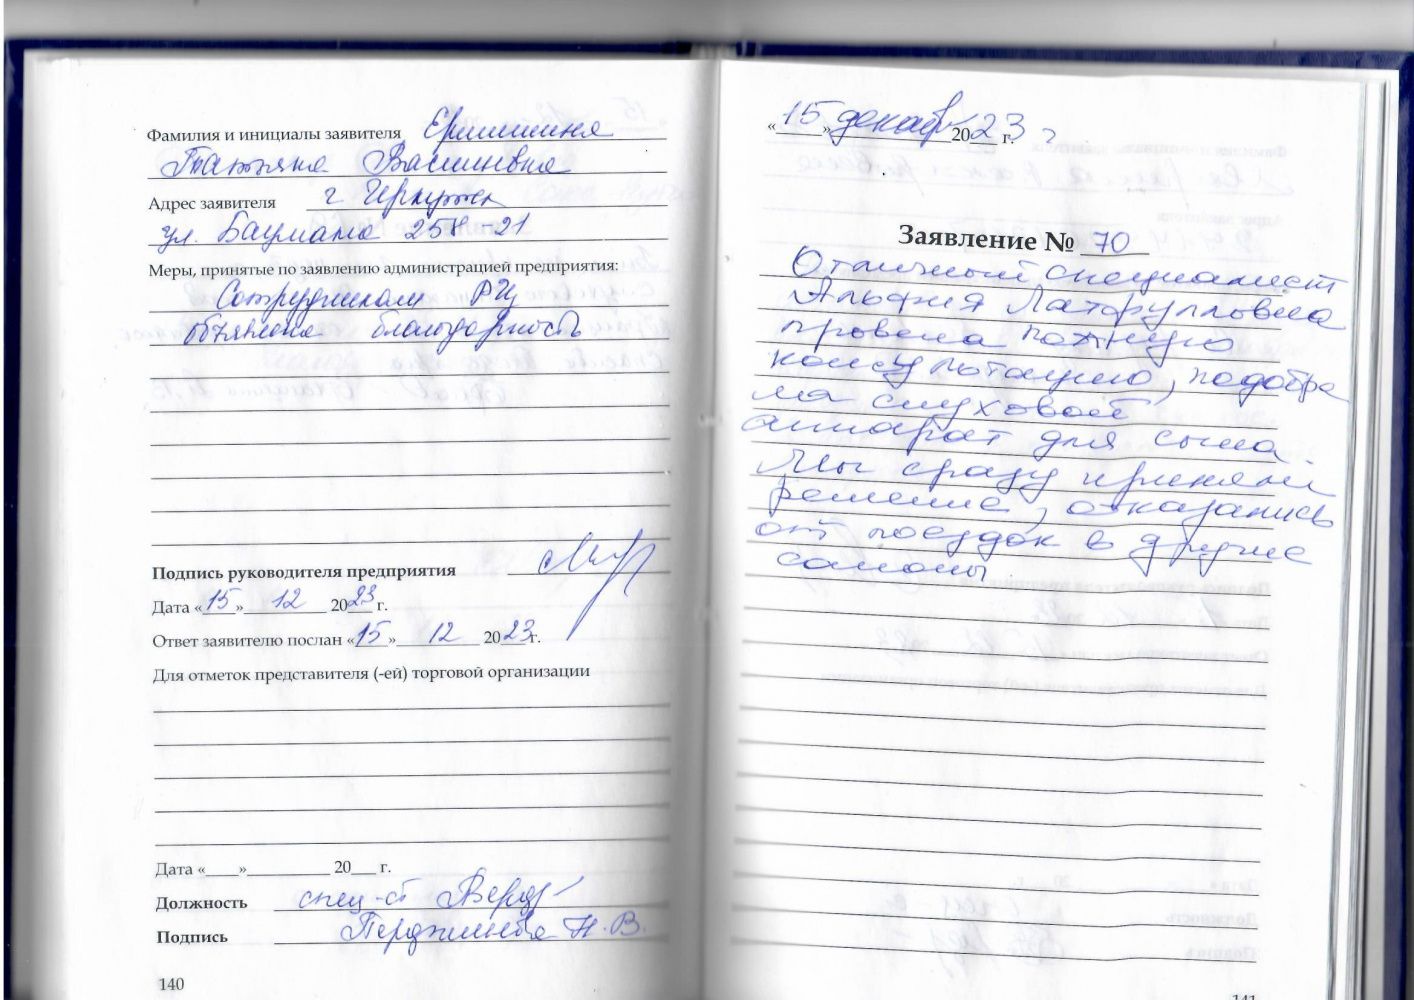 Фамилия и инициалы заявителя
Татьяна
Адрес заявителя г
ул. Баумана 25 -21
Меры, принятые по заявлению администрацией предприятия:
Сотрудникам РЦ
объявлена благодарность
Подпись руководителя предприятия
Дата «15» 12 2023 г.
Ответ заявителю послан «15» 12 2023г.
Для отметок представителя (-ей) торговой организации
Дата «___»__________ 20___ г.
Должность спец-ст
Подпись Н.В.
140
«15» декабря 2023 г. г
Заявление № 70
Отличный специалист
Альфия Латфулловна
провела полную
консультацию, подобра
ла слуховой
аппарат для сына.
Мы сразу приняли
решение, отказались
от поездок в другие
салоны.
141